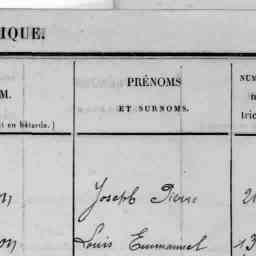 IQUE.
PRÉNOMS
ET SURNOMS.
NUM
M.
t en bâtarde.)
tric
Joseph Pierre
Louis Emmanuel
13